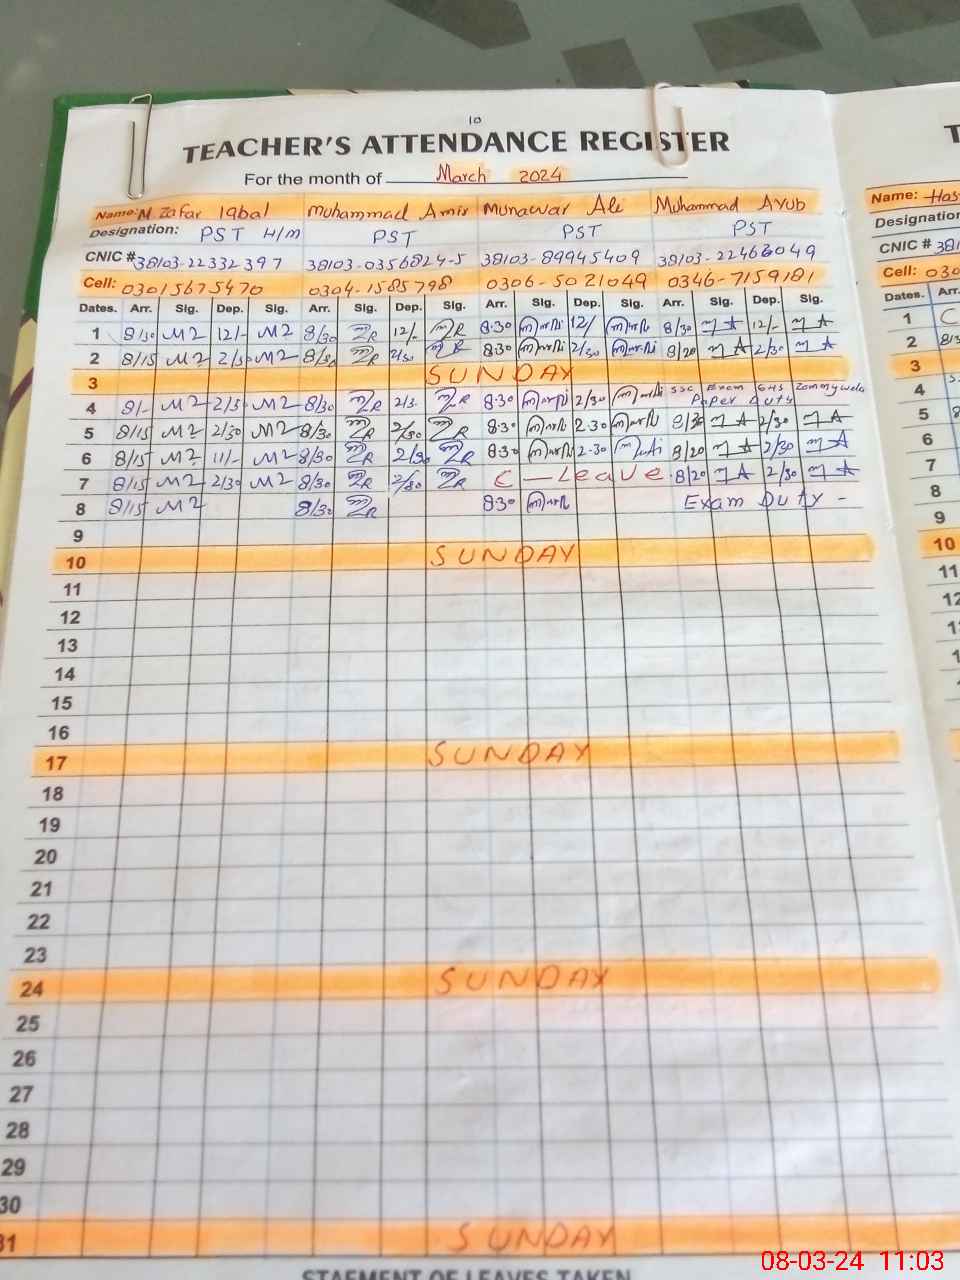 10
TEACHER'S ATTENDANCE REGISTER
For the month of March 2024
Name: M. Zafar Iqbal Muhammad Amir Munawar Ali Muhammad Ayub
Designation: PST H/M PST PST PST
CNIC # 38103-22332397 38103-0356824-5 38103-89945409 38103-22466049
Cell: 03015675470 0304-1585798 0306-5021049 0346-7159181
Dates. Arr. Sig. Dep. Sig. Arr. Sig. Dep. Sig. Arr. Sig. Dep. Sig. Arr. Sig. Dep. Sig.
1 8/30 M2 12/- M2 8/30 12/- 8.30 12/ 8/30 12/-
2 8/15 M2 2/30 M2 8/30 2/30 8.30 2/30 8/20 2/30
3 SUNDAY
4 8/- M2 2/3 M2 8/30 2/3. 8.30 2/30 SSC Exam GHS
Paper Duty
5 8/15 M2 2/30 M2 8/30 2/30 8.30 2.30 8/30 2/30
6 8/15 M2 11/- M2 8/30 2/30 8.30 2-30 8/20 2/30
7 8/15 M2 2/30 M2 8/30 2/30 C - Leave 8/20 2/30
8 8/15 M2 8/30 8.30 Exam Duty -
9
10 SUNDAY
11
12
13
14
15
16
17 SUNDAY
18
19
20
21
22
23
24 SUNDAY
25
26
27
28
29
30
31 SUNDAY
STAEMENT OF LEAVES TAKEN
T
Name: Has
Designation
CNIC # 381
Cell: 030
Dates. Arr.
1
2
3
4
5
6
7
8
9
10
11
08-03-24 11:03